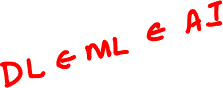 DL ∈ ML ∈ AI